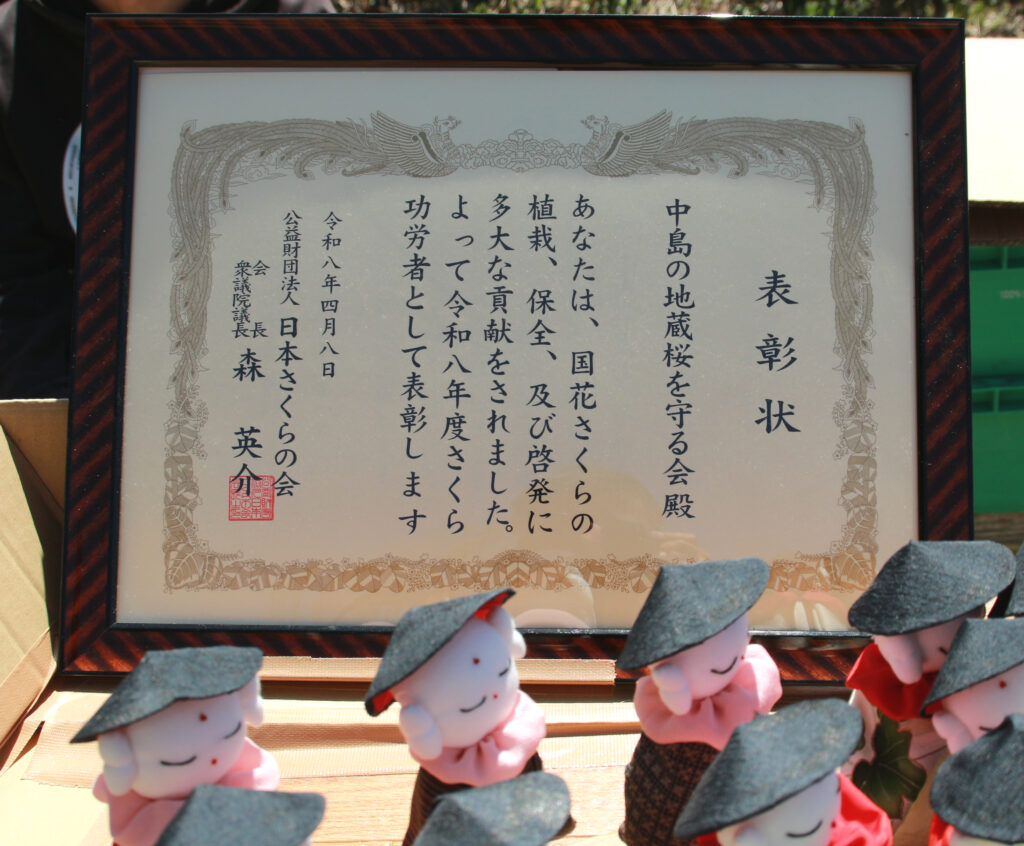 表彰状
中島の地蔵桜を守る会 殿
あなたは、国花さくらの
植栽、保全、及び啓発に
多大な貢献をされました。
よって令和八年度さくら
功労者として表彰します
令和八年四月八日
公益財団法人 日本さくらの会
会長
衆議院議長 森 英介